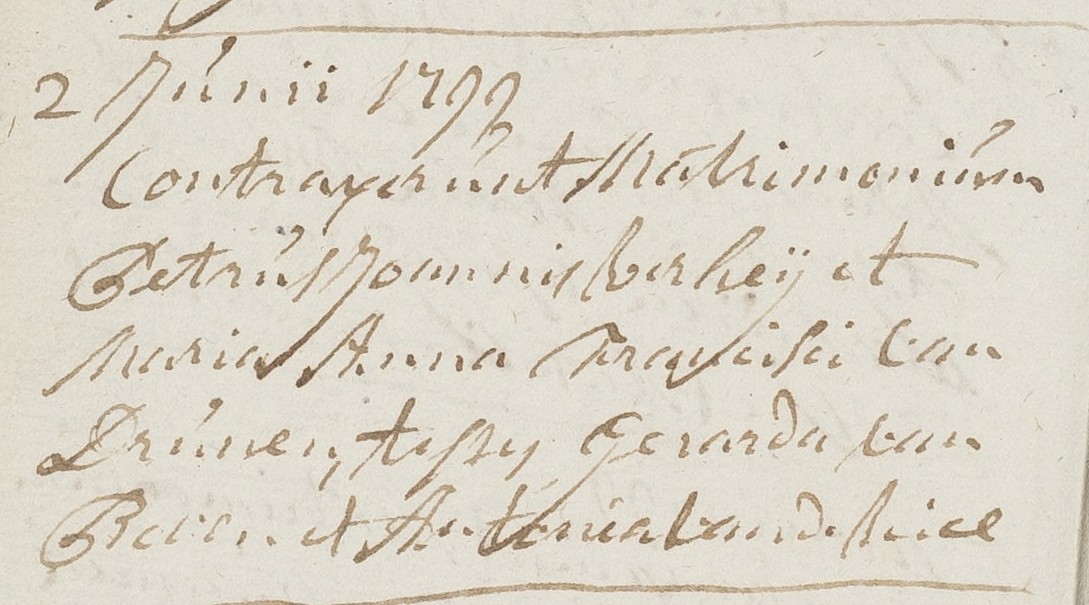 2 Júnii 1799
Contraxerúnt Matrimoniúm
Petrús Joannis Verheij et
Maria Anna Francisci van
Drúnen, testes Gerarda van
et Antonia van de